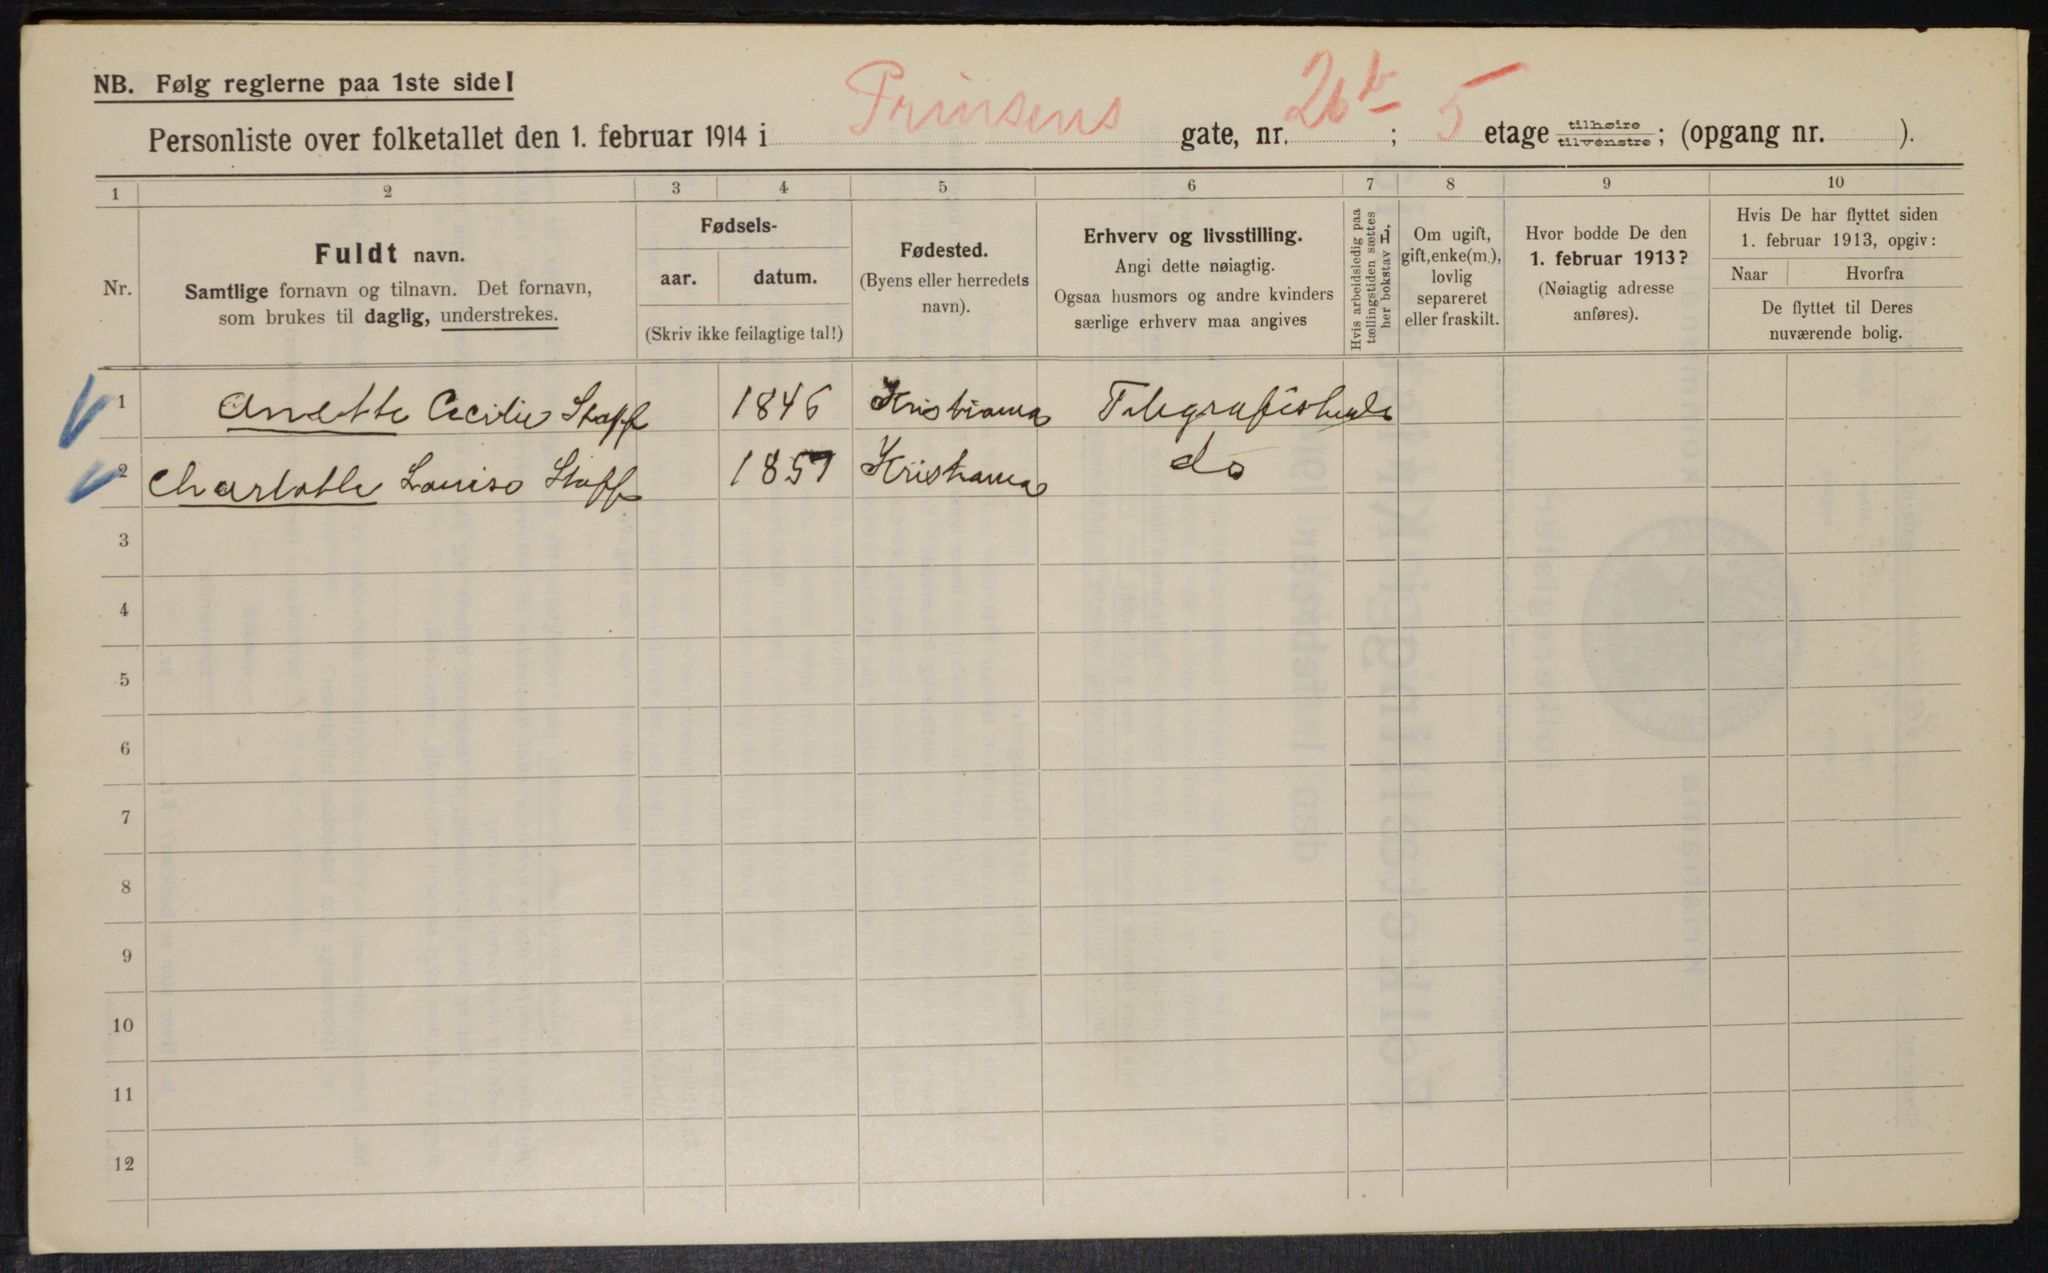 NB. Følg reglerne paa 1ste side!
Personliste over folketallet den 1. februar 1914 i Prinsens gate, nr. 26 b; 5 etage tilhøire/tilvenstre; (opgang nr. ).
1 2 3 4 5 6 7 8 9 10
Nr.
Fuldt navn.
Samtlige fornavn og tilnavn. Det fornavn,
som brukes til daglig, understrekes.
Fødsels-
aar. datum.
(Skriv ikke feilagtige tal!)
Fødested.
(Byens eller herredets
navn).
Erhverv og livsstilling.
Angi dette nøiagtig.
Ogsaa husmors og andre kvinders
særlige erhverv maa angives
Hvis arbeidsledig paa
tællingstiden sættes
her bokstav L.
Om ugift,
gift, enke(m.),
lovlig
separeret
eller fraskilt.
Hvor bodde De den
1. februar 1913?
(Nøiagtig adresse
anføres).
Hvis De har flyttet siden
1. februar 1913, opgiv:
Naar Hvorfra
De flyttet til Deres
nuværende bolig.
1 Anette Cecilie Staff 1846 Kristiania
2 Charlotte Louise Staff 1857 Kristiania do
3
4
5
6
7
8
9
10
11
12